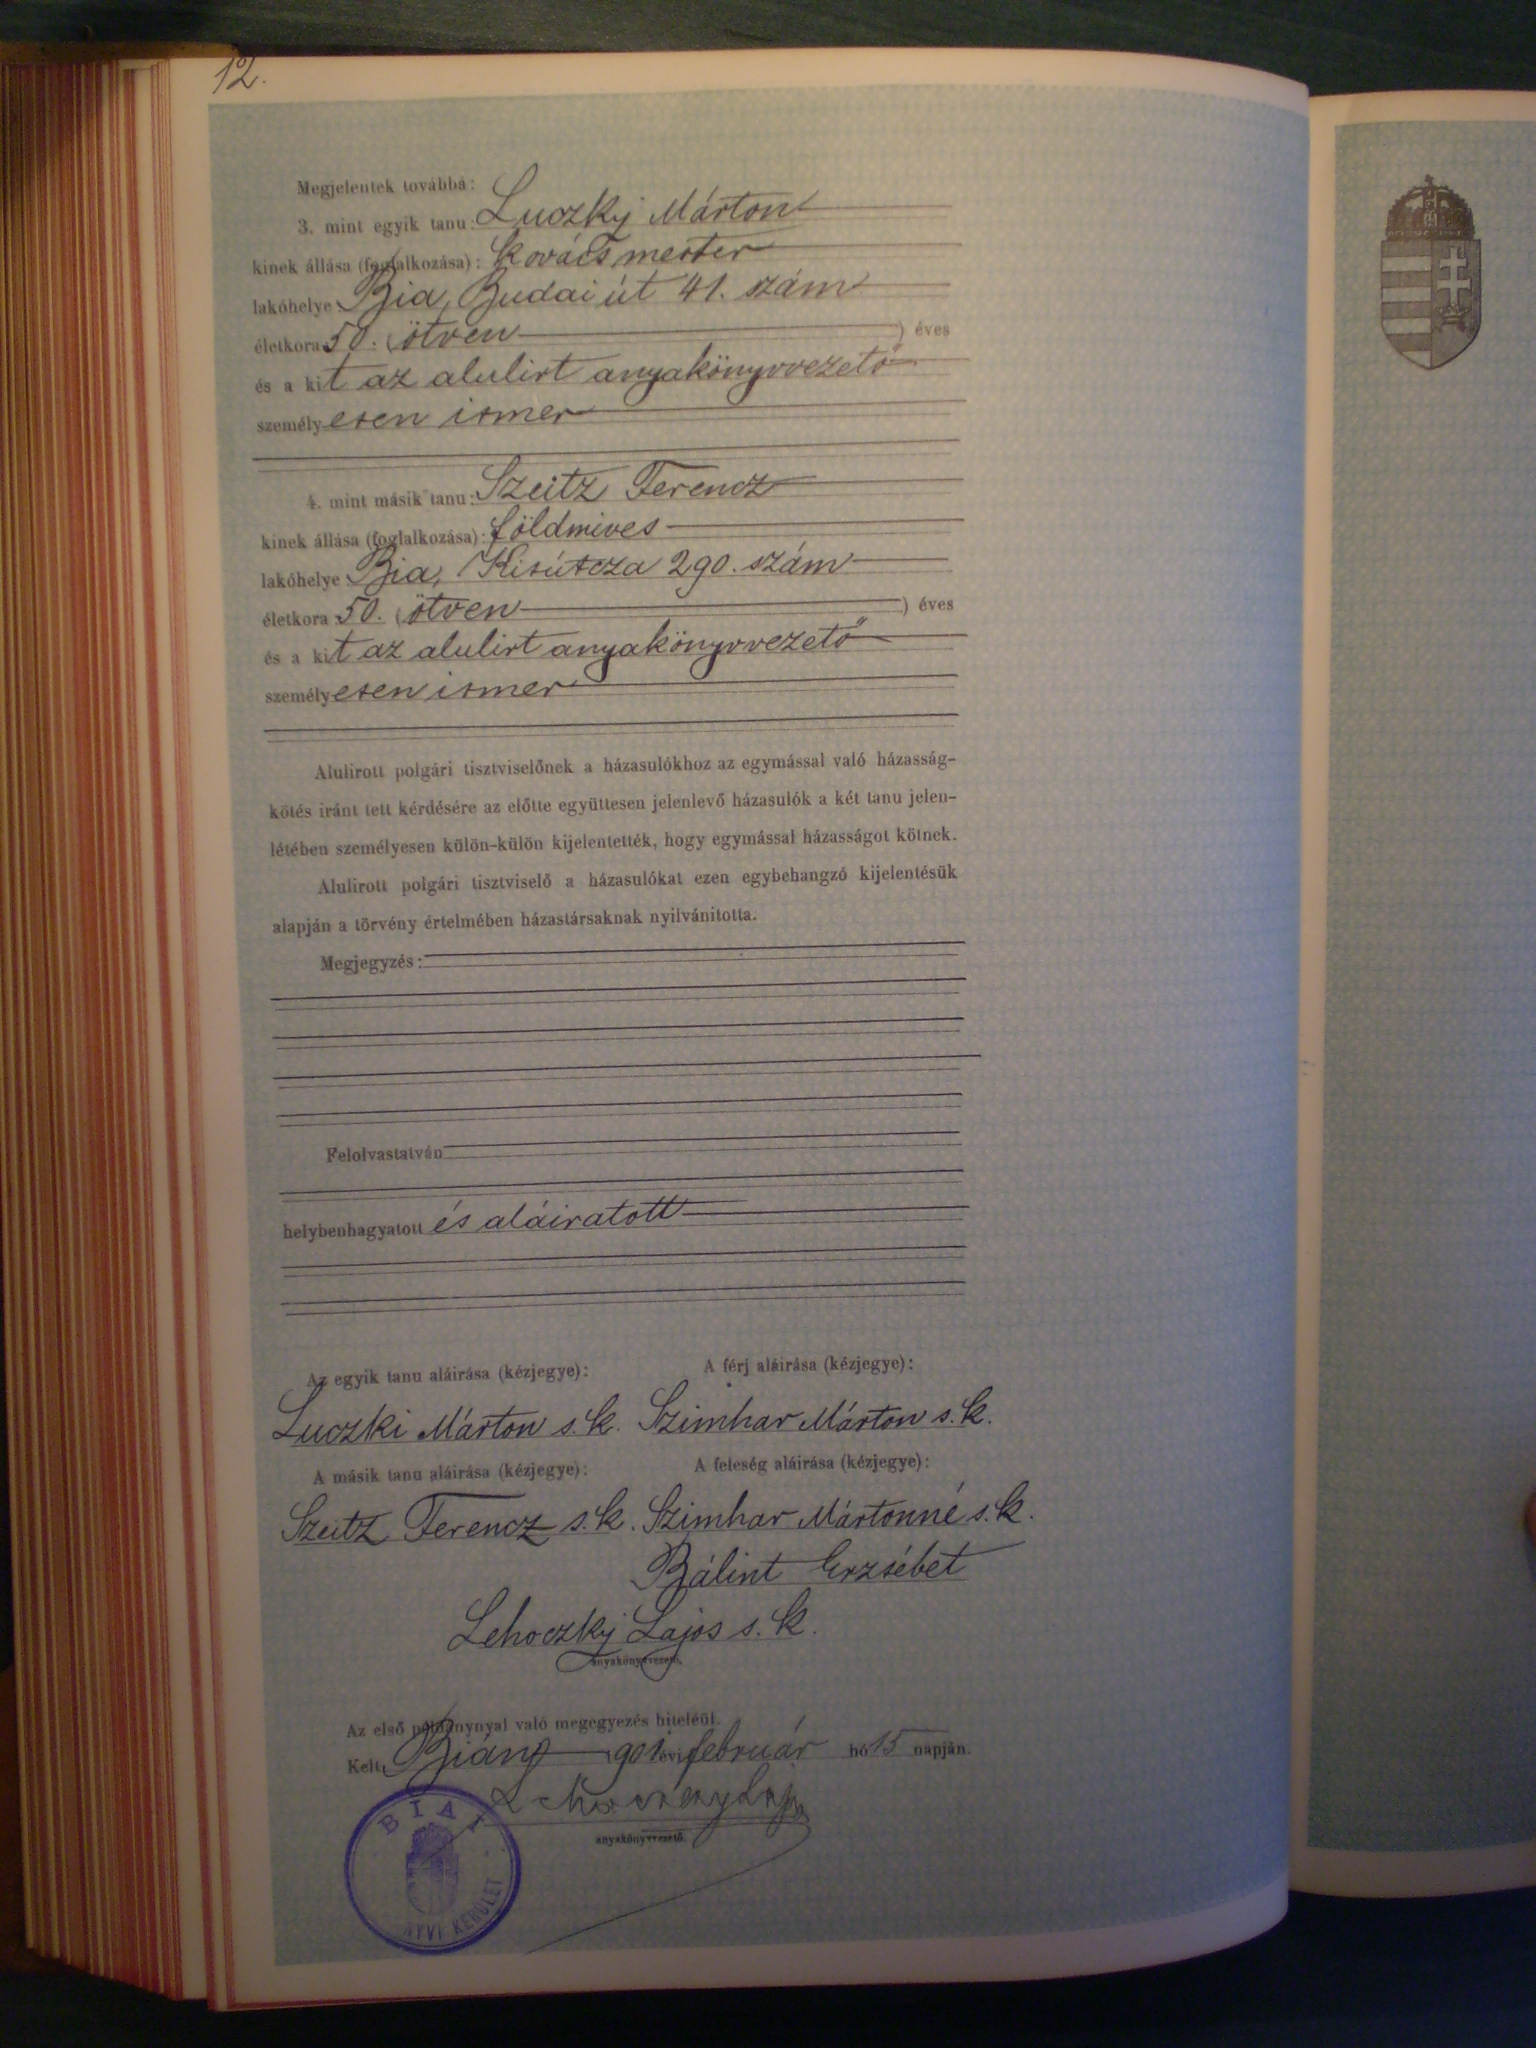 12.
Megjelentek továbbá:
3. mint egyik tanu: Luczky Márton
kinek állása (foglalkozása): kovács mester
lakóhelye Bia, Budai út 41. szám
életkora 50. (ötven) éves
és a kit az alulirt anyakönyvvezető
személyesen ismer
4. mint másik tanu: Szeitz Ferencz
kinek állása (foglalkozása): földmives
lakóhelye Bia, Kisútcza 290. szám
életkora 50. (ötven) éves
és a kit az alulirt anyakönyvvezető
személyesen ismer
Alulirott polgári tisztviselőnek a házasulókhoz az egymással való házasság-
kötés iránt tett kérdésére az előtte együttesen jelenlevő házasulók a két tanu jelen-
létében személyesen külön-külön kijelentették, hogy egymással házasságot kötnek.
Alulirott polgári tisztviselő a házasulókat ezen egybehangzó kijelentésük
alapján a törvény értelmében házastársaknak nyilvánitotta.
Megjegyzés:
Felolvastatván
helybenhagyatott és aláiratott
Az egyik tanu aláirása (kézjegye): A férj aláirása (kézjegye):
Luczki Márton s.k. Szimhar Márton s.k.
A másik tanu aláirása (kézjegye): A feleség aláirása (kézjegye):
Szeitz Ferencz s.k. Szimhar Mártonné s.k.
Bálint Erzsébet
Lehoczky Lajos s.k.
anyakönyvvezető.
Az első példánynyal való megegyezés hiteléül.
Kelt, Bián 1901 évi február hó 15 napján.
Lehoczky Lajos
anyakönyvvezető.
BIAI
NYVI KERÜLET